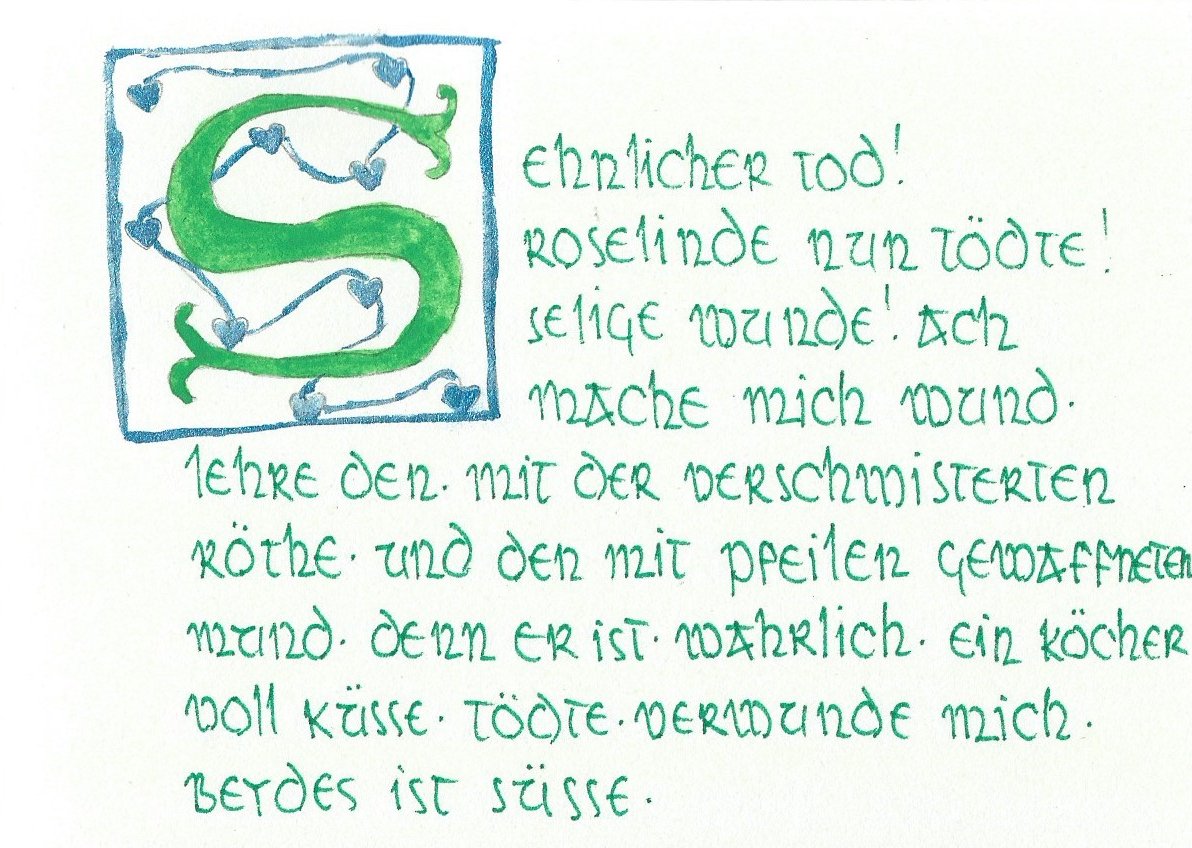 Sehnlicher tod!
roselinde nun tödte!
selige wunde! ach
mache mich wund.
lehre den. mit der verschwisterten
röthe. und den mit pfeilen gewaffneten
mund. denn er ist. wahrlich. ein köcher
voll küsse. tödte. verwunde mich.
beydes ist süsse.